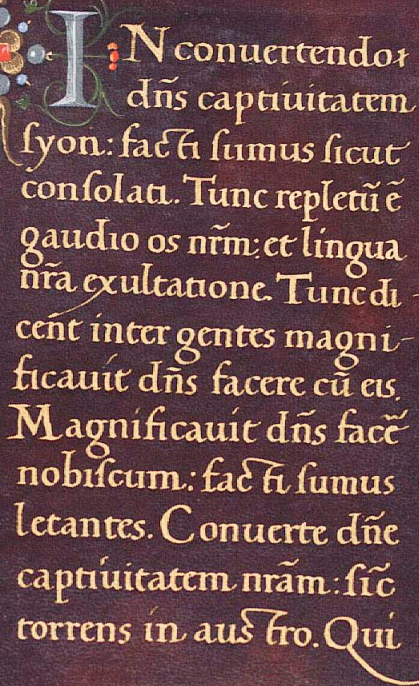 IN conuertendo:
dn̄s captiuitatem
syon: facti sumus sicut
consolati. Tunc repletū ē
gaudio os nr̄m: et lingua
nr̄a exultatione. Tunc di
cēnt inter gentes magni-
ficauit dn̄s facere cū eis.
Magnificauit dn̄s facē
nobiscum: facti sumus
letantes. Conuerte dn̄e
captiuitatem nrām: sic̄
torrens in austro. Qui